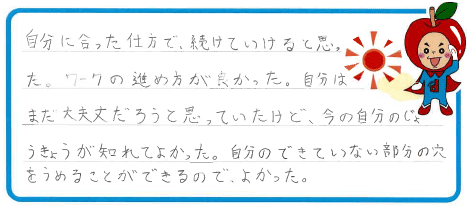 自分に合った仕方で、続けていけると思っ
た。ワークの進め方が良かった。自分は
まだ大丈夫だろうと思っていたけど、今の自分のじょ
うきょうが知れてよかった。自分のできていない部分の穴
をうめることができるので、よかった。